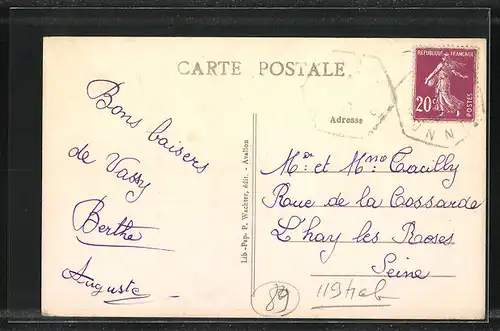 CARTE POSTALE
RÉPUBLIQUE FRANÇAISE
20c
POSTES
Adresse
Bons baisers
de Vassy
Berthe
Auguste
Lib-Pap. P. Wachter, édit. - Avallon
Mr et Mme Cacilly
Rue de la Cossarde
L'hay les Roses
Seine